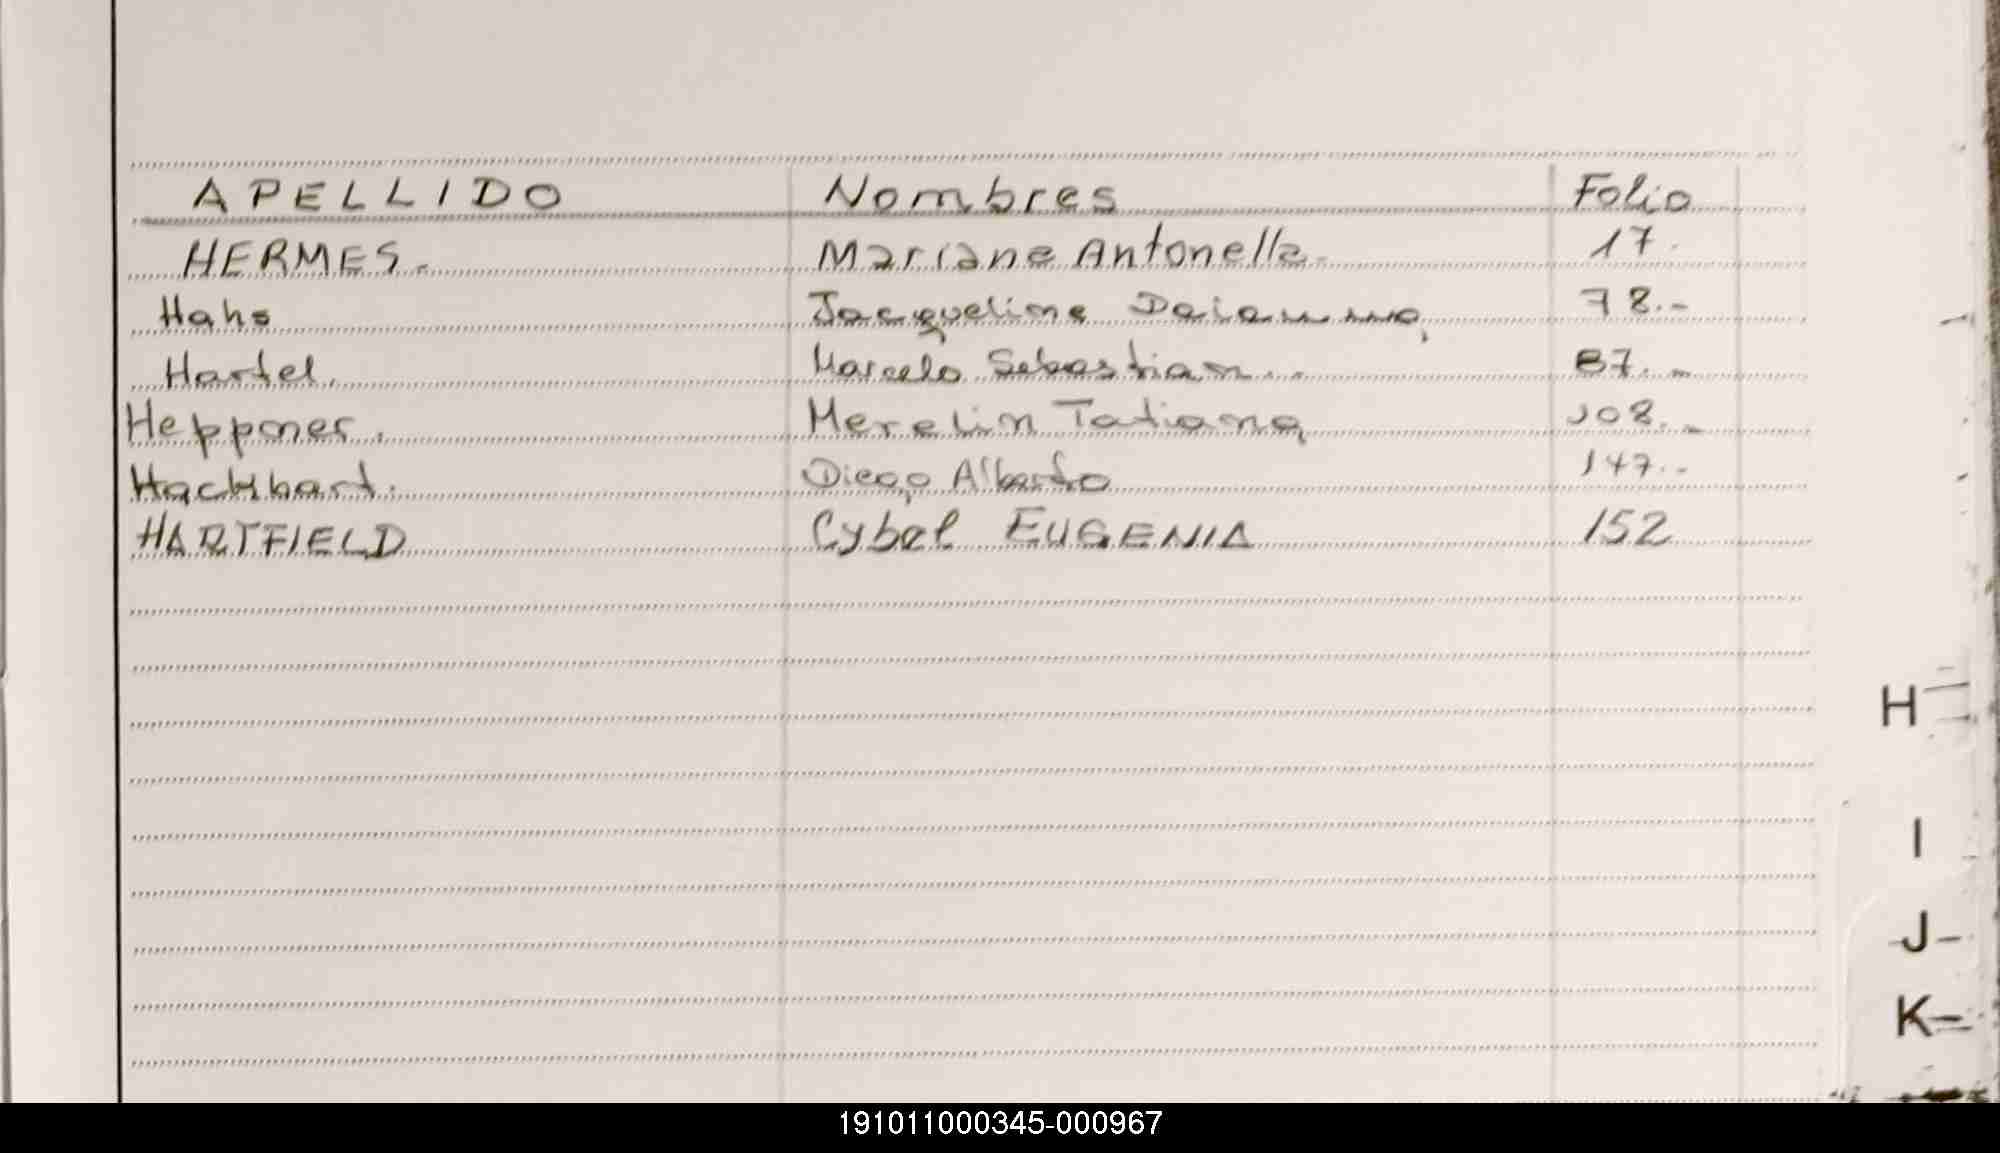 APELLIDO Nombres Folio
HERMES. Mariane Antonella. 17.
Hahs Jacqueline Daianna 78.-
Hartel. Marcelo Sebastian.. 87.-
Heppner. Merelin Tatiana 108.-
Hackbart. Diego Alberto 147.-
HARTFIELD Cybel EUGENIA 152
H
I
J
K
191011000345-000967